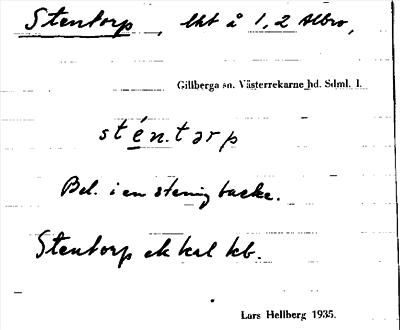 Stentorp, lht å 1, 2 Albro,
Gillberga sn. Västerrekarne hd. Sdml. l.
stén.tɔrp
Bel. i en stenig backe.
Stentorp ek kal kb.
Lars Hellberg 1935.